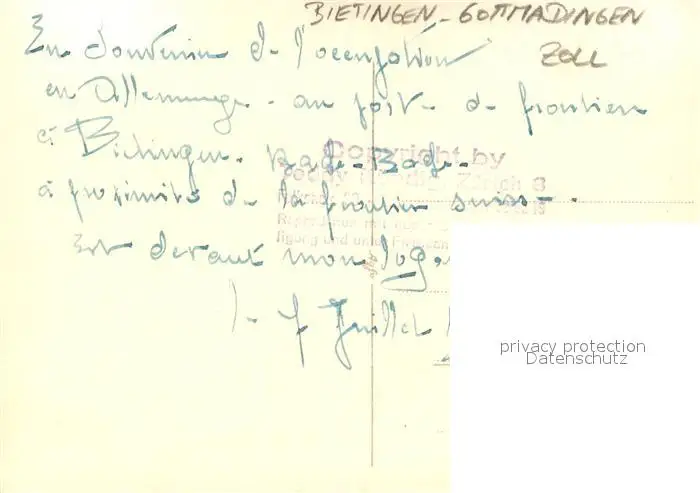 BIETINGEN - GOTTMADINGEN
ZOLL
En Souvenir de l'occupation
en Allemagne - au poste de frontière
à Bietingen. Bade-Bade
à proximité de la frontière suisse.
Est devant mon log
le 7 Juillet
Copyright by
Zürich 8
privacy protection
Datenschutz